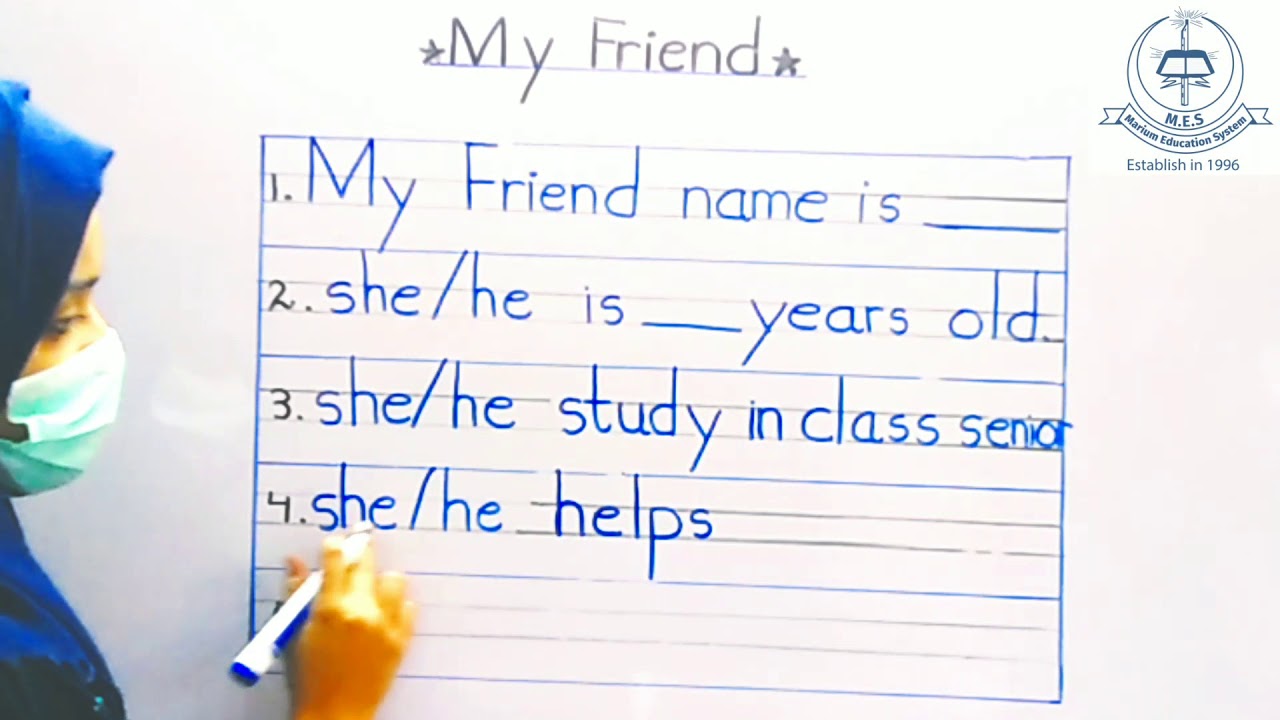 ★My Friend★
M.E.S
Marium Education System
Establish in 1996
1. My Friend name is ___
2. she/he is ___ years old.
3. she/he study in class senior
4. she/he helps